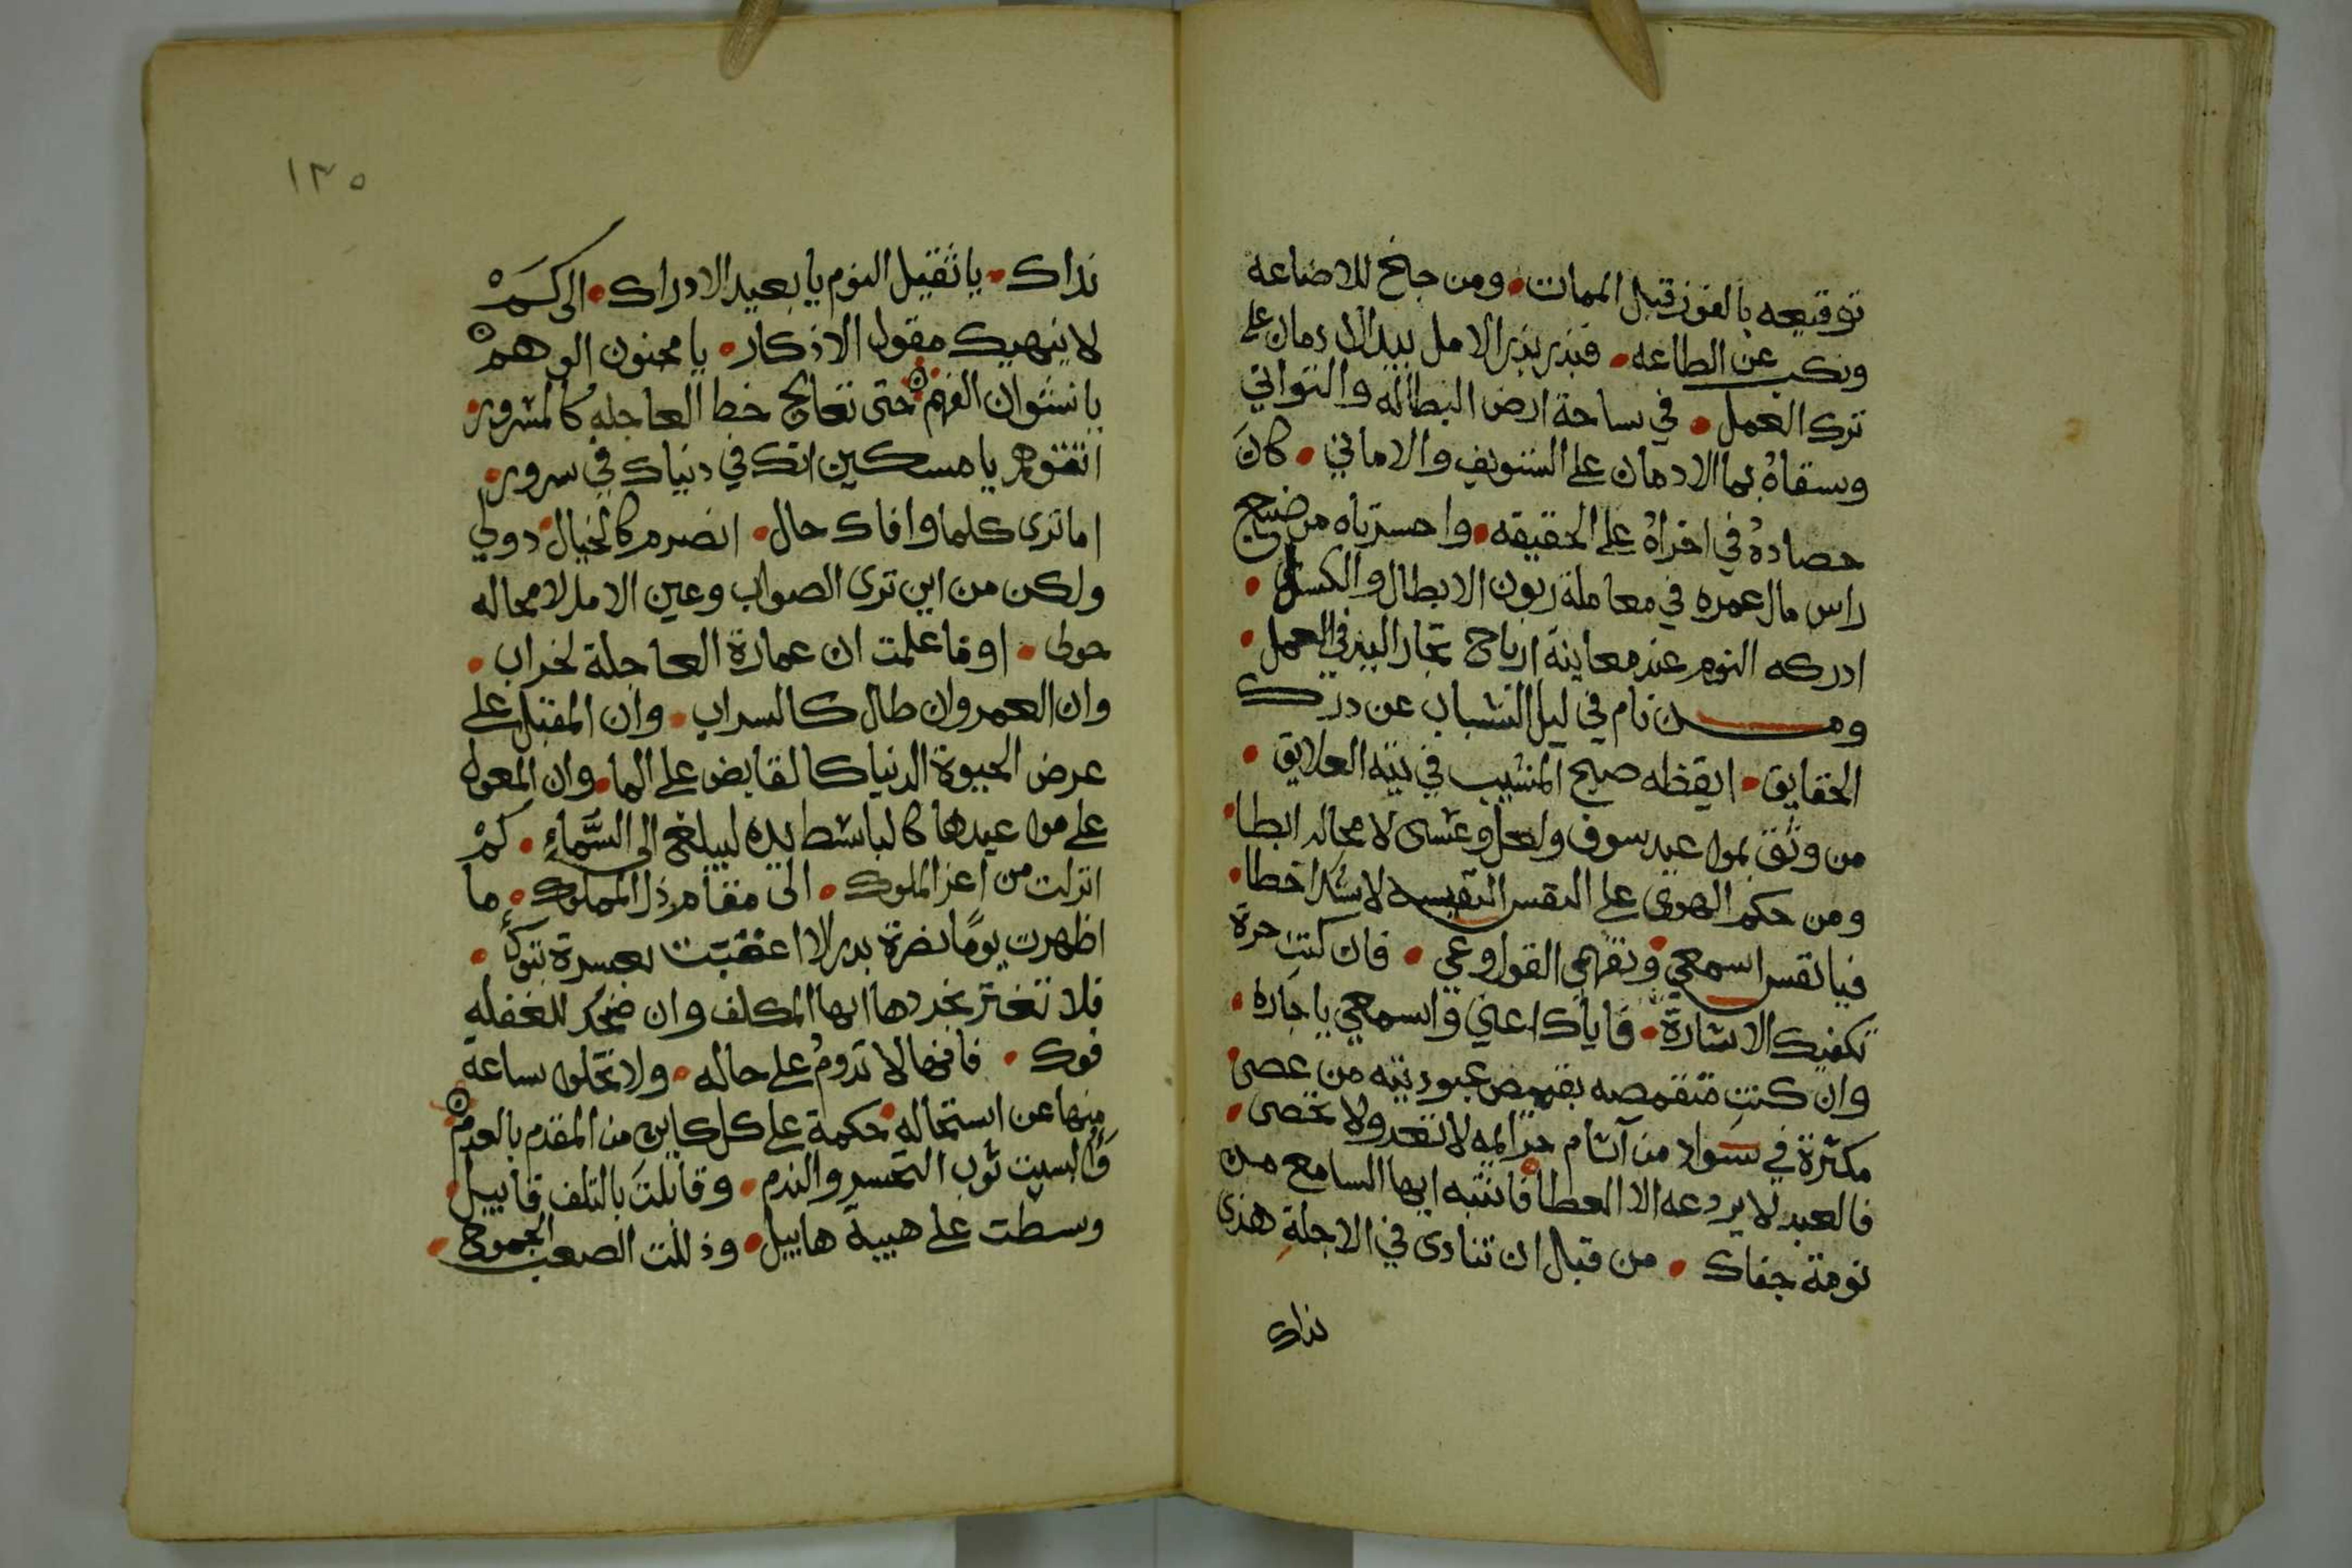 توقيعه بالفوز قبل الممات • ومن جنح للاضاعه
ونكب عن الطاعه • فبذر بذر الامل بيد الادمان على
ترك العمل • في ساحة ارض البطاله والتواني
وسقاه بما الادمان على التسويف والاماني • كان
حصاده في اخراه على الحقيقه • واحسرتاه من ضيع
راس مال عمره في معاملة زبون الابطال والكسل •
ادركه النوم عند معاينة ارباح تجار البر في العمل •
ومن نام في ليل الشباب عن درك
الحقايق • ايقظه صبح المشيب في تيه العلايق •
من وثق بمواعيد سوف ولعل وعسى لا محاله ابطا •
ومن حكم الهوى على النفس النفيسه لا شك اخطا •
فيا نفس اسمعي • وتفهمي القول وعي • فان كنت حرة
تكفيك الاشارة • فاياك اعني واسمعي ياجاره •
وان كنت متقمصه بقميص عبودية من عصى •
مكثرة في سواد من آثام جرايمه لا تعد ولا تحصى •
فالعبد لا يردعه الا العطا • فانتبه ايها السامع من
نومة جفاك • من قبل ان تنادى في الاجلة هذى
نداك
١٣٥
نداك • يا ثقيل النوم يا بعيد الادراك • الى كم
لا ينهيك مقول الاذكار • يا مجنون الوهم
يا نشوان الفهم حتى تعالج خطا العاجله كالمشرور •
اتتوهم يا مسكين انك في دنياك في سرور •
اما ترى كلما وافاك حال • انصرم كالخيال • دولي
ولكن من اين ترى الصواب وعين الامل لا محاله
حولى • اوما علمت ان عمارة العاجلة لخراب •
وان العمر وان طال كالسراب • وان المقبل على
عرض الحيوة الدنيا كالقابض على الما • وان المعول
على مواعيدها كالباسط يده ليبلغ الى السماء • كم
انزلت من اعز الملوك • الى مقام ذل المملوك • ما
اظهرت يوما نضرة بدر الا اعقبت بعسرة
فلا تغتر ايها المكلف وان ضحك للغفله
فوك • فانها لا تدوم على حاله • ولا تخلوا ساعة
منها عن استحاله • حكمة على كل كاين من المقدم بالعدم
والبست ثوب التحسر والندم • وقابلت بالتلف قابيل •
وسطت على هيبة هابيل • وذللت الصعب الجموح •